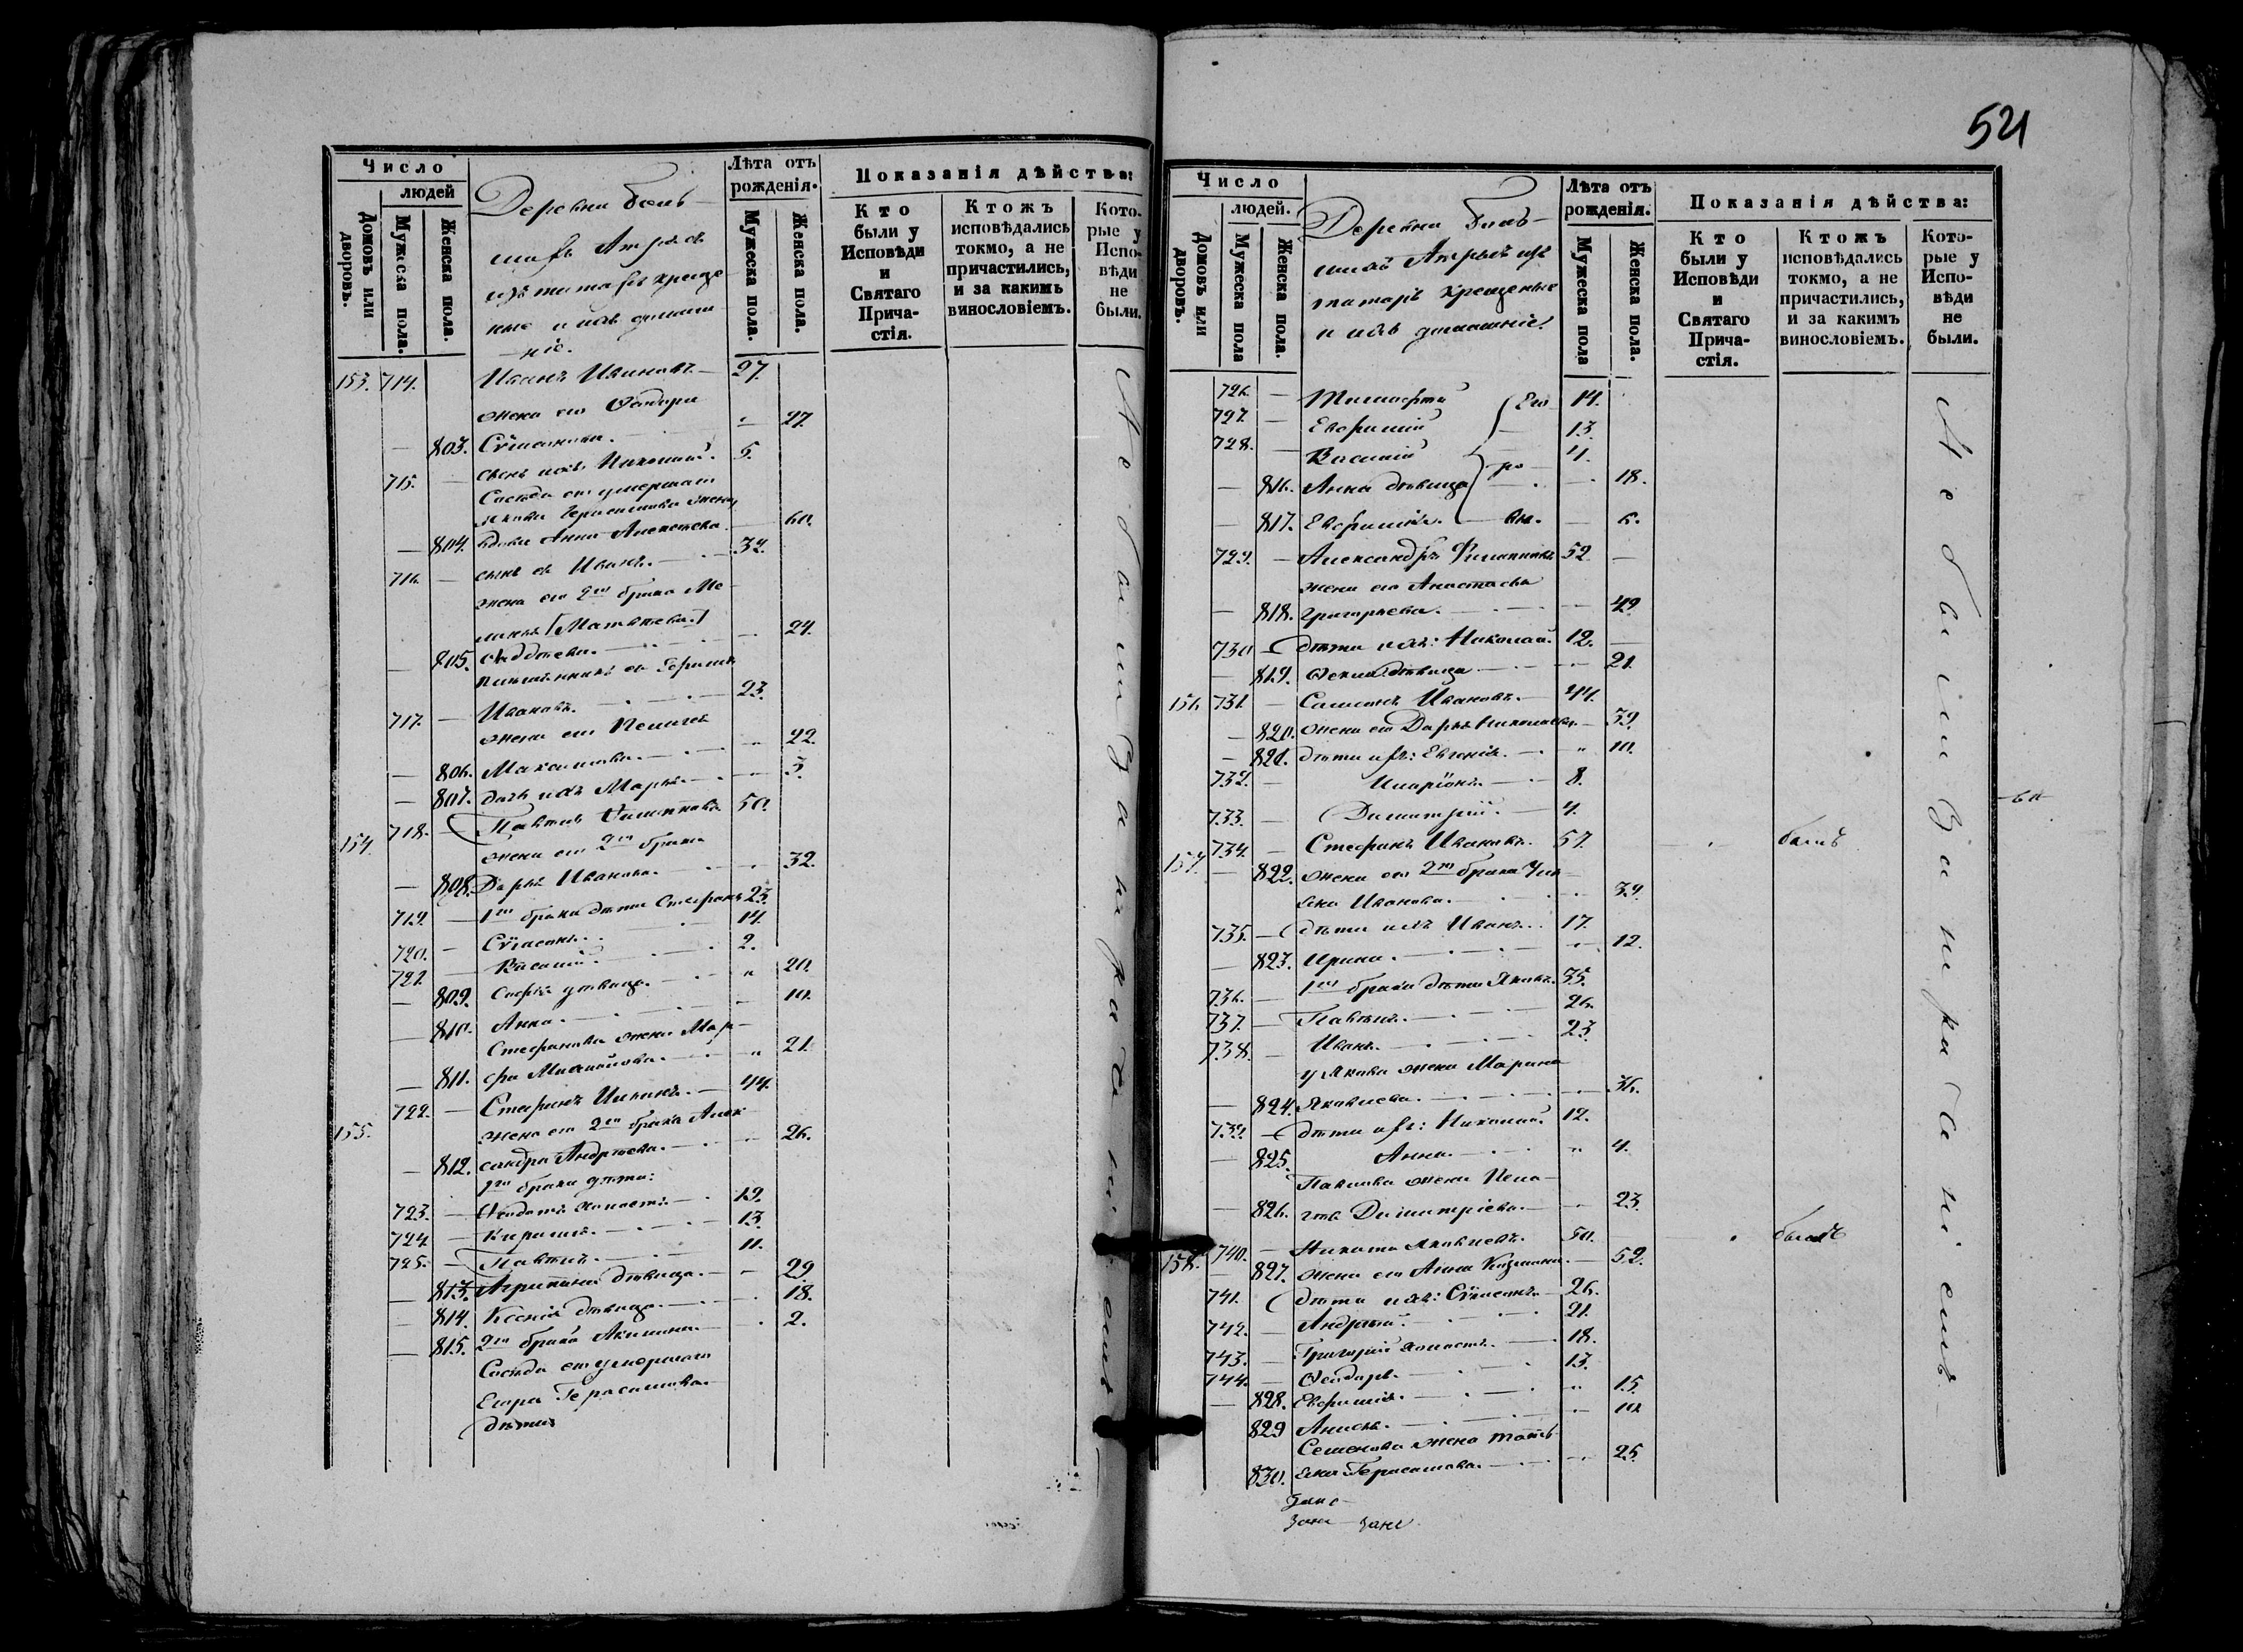 521
Число
людей
Домовъ или дворовъ.
Мужеска пола.
Женска пола.
Деревни боль-
шихъ Атрясъ
изъ татаръ креще
ные и ихъ домаш
ніе.
Лѣта отъ рожденія.
Мужеска пола.
Женска пола.
Показанія дѣйства:
Кто были у Исповѣди и Святаго Причастія.
Ктожъ исповѣдались токмо, а не причастились, и за какимъ винословіемъ.
Которые у Исповѣди не были.
153. 714. Иванъ Ивановъ 27.
жена его Ѳеодора
803. Сѵмеонова. 27.
715. сынъ ихъ Николай. 5.
Сосѣда его умершаго
Якова Герасимова жена
804. вдова Анна Алексѣева 60.
716. сынъ ея Иванъ. 32.
жена его 2го брака Ме
ланья [Матвѣева.]
805. 24.
племянникъ ея Герасимъ
717. Ивановъ. 23.
жена его Пелагея
806. Максимова. 22.
807. дочь ихъ Марья. 3.
154. 718. Павелъ Филиповъ 50.
жена его 2го брака
808. Дарья Иванова. 32.
719. 1го брака дѣти Стефанъ 23.
720. Сѵмеонъ. 14.
721. Василій. 2.
809. Софья дѣвица. 20.
810. Анна. 10.
Стефанова жена Мар-
811. фа Михайлова. 21.
155. 722. Стефанъ Ильинъ. 44.
жена его 2го брака Алек
812. сандра Андреева. 26.
1го брака дѣти:
723. холостъ 19.
724. Кирилъ. 13.
725. Павелъ. 11.
813. Агрипина дѣвица. 29.
814. Ксенія дѣвица. 18.
815. 2го брака Акилина. 2.
Сосѣда его умершаго
Егора Герасимова
дѣти
Не были за нераченіемъ
Число
людей.
Домовъ или дворовъ.
Мужеска пола
Женска пола.
Деревни боль-
шихъ Атрясъ изъ
татаръ крещеные
и ихъ домашніе.
Лѣта отъ рожденія.
Мужеска пола
Женска пола.
Показанія дѣйства:
Кто были у Исповѣди и Святаго Причастія.
Ктожъ исповѣдались токмо, а не причастились, и за какимъ винословіемъ.
Которые у Исповѣди не были.
726. Тимофей Его 14.
727. Евфимій 13.
728. Василій 4.
816. Анна дѣвица 18.
817. Евфимія. 6.
729. Александръ Филиповъ 52
жена его Анастасья
818. Григорьева. 49.
730 дѣти ихъ: Николай. 12.
819. дѣвица 21.
156. 731. Иванъ Ивановъ. 44.
820. жена его Дарья Николаева. 39.
821. дѣти ихъ: Евгенія. 10.
732. Иларіонъ. 8.
733. Димитрій. 4.
157. 734. Стефанъ Ивановъ. 57. былъ
822. жена его 2го брака Уль
яна Иванова. 39.
735. дѣти ихъ Иванъ. 17.
823. Ирина. 12.
736. 1го брака дѣти Яковъ. 35.
737. Павелъ. 26.
738. Иванъ. 23.
у Якова жена Марина
824. Яковлева. 36.
739. дѣти ихъ: Николай. 12.
825. Анна. 4.
Павлова жена Пела-
826. гея Димитріева. 23.
158. 740. Никита Яковлевъ. 50. былъ
827. жена его Анна Кузмина. 52.
741. дѣти ихъ: Сѵмеонъ. 26.
742. Андрей. 21.
743. Григорій холостъ. 18.
744. Ѳеодоръ. 13.
828. Евфимія. 15.
829 Анисья. 10.
Семенова жена Тать
830. яна Герасимова. 25.
Не были за нераченіемъ